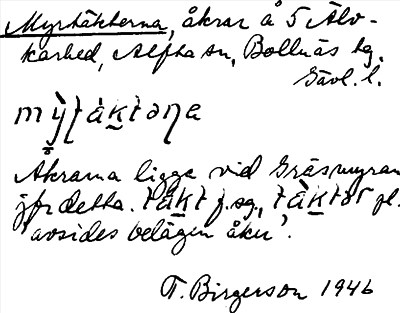 Myrtäkterna, åkrar å 5 Älv-
karhed, Alfta sn, Bollnäs tg.
Gävl. l.
Åkrarna ligga vid Gräsmyran
jfr detta. f. sg., pl.
'avsides belägen åker'.
T. Birgerson 1946